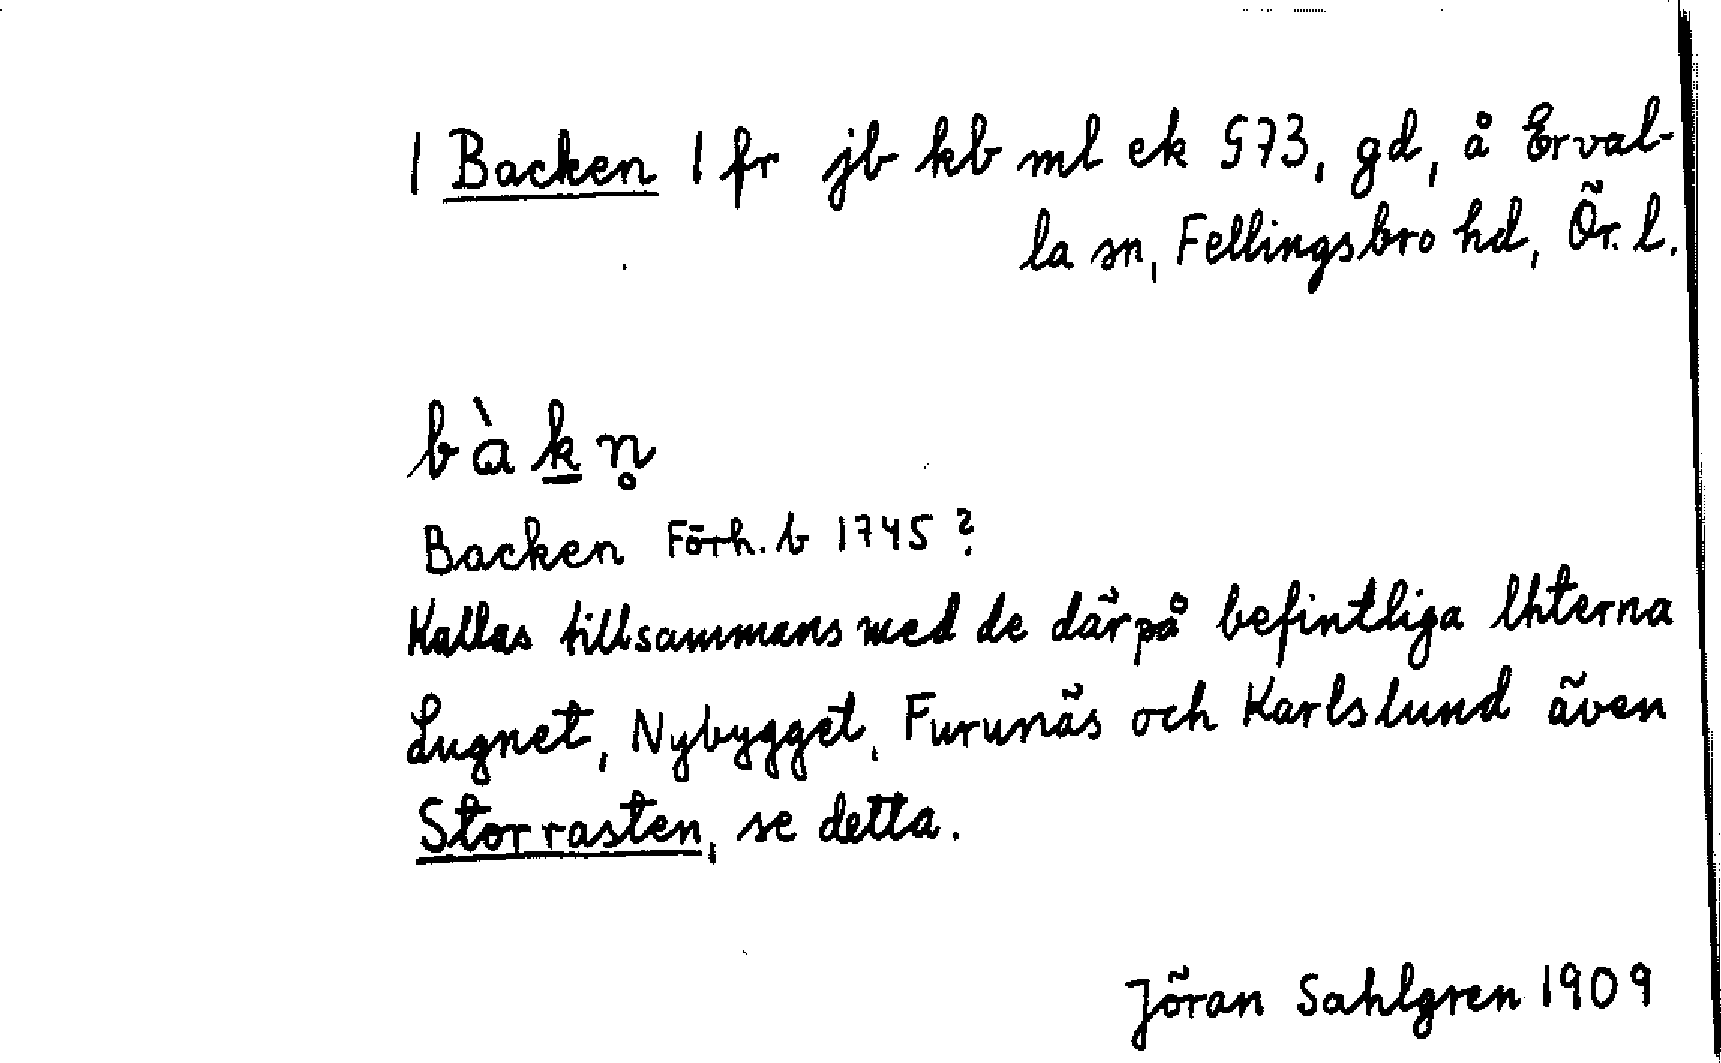 | Backen | fr jb kb ml ek G73, gd, å Erval-
la sn, Fellingsbro hd, Ör. l.
bàkn̥
Backen Förh. b 1745?
Kallas tillsammans med de därpå befintliga lhterna
Lugnet, Nybygget, Furunäs och Karlslund även
Storrasten, se detta.
Jöran Sahlgren 1909